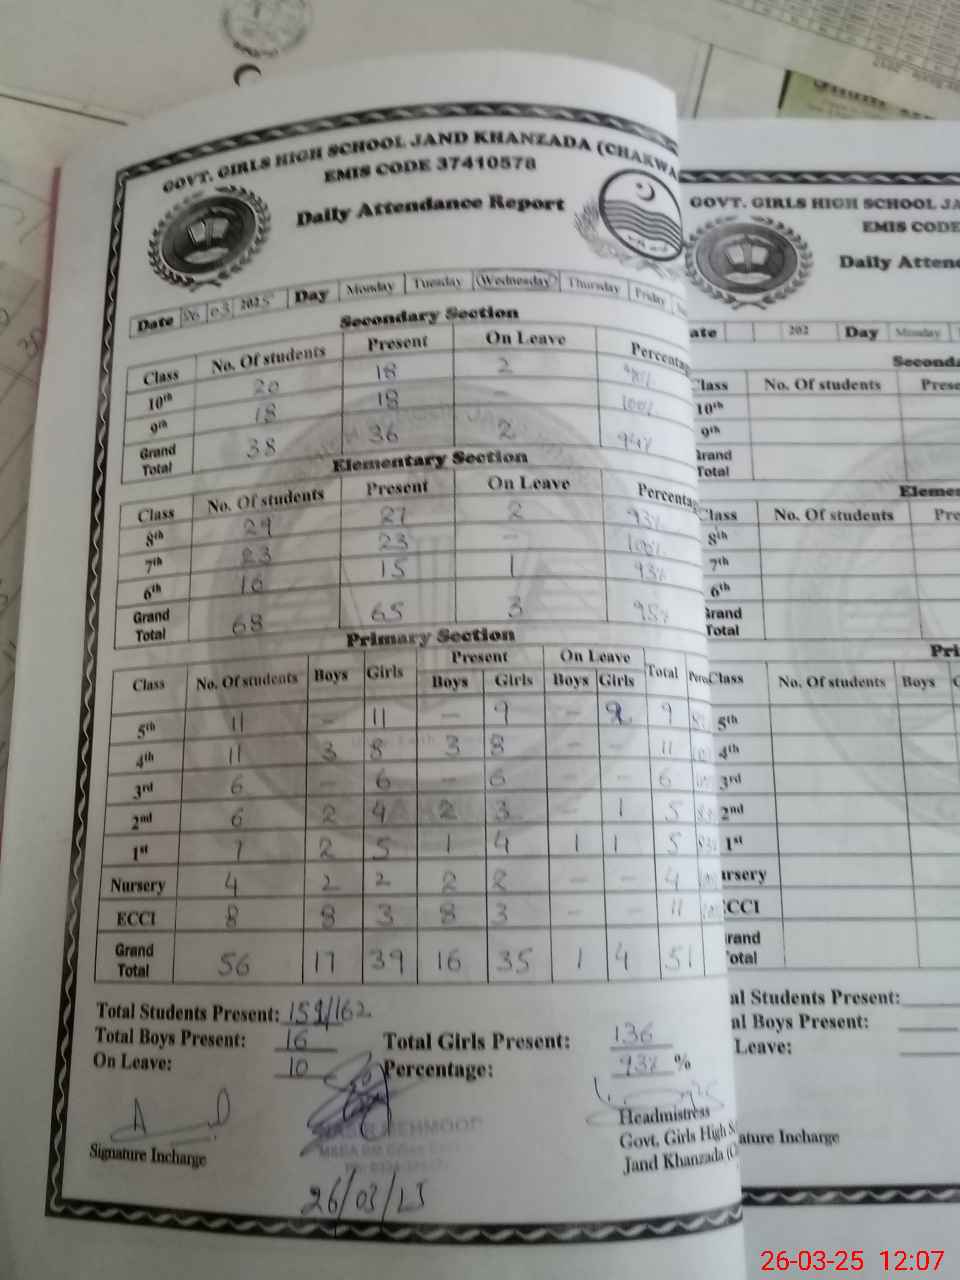 GOVT. GIRLS HIGH SCHOOL JAND KHANZADA (CHAKWA
EMIS CODE 37410578
Daily Attendance Report
Date 26 03 2025 Day Monday Tuesday Wednesday Thursday Friday
Secondary Section
Class No. Of students Present On Leave Percentag
10th 20 18 2 90%
9th 18 18 - 100%
Grand Total 38 36 2 94%
Elementary Section
Class No. Of students Present On Leave Percentag
8th 29 27 2 93%
7th 23 23 - 100%
6th 16 15 1 93%
Grand Total 68 65 3 95%
Primary Section
Class No. Of students Boys Girls Present On Leave Total
Boys Girls Boys Girls
5th 11 - 11 - 9 - 2 9
4th 11 3 8 3 8 - - 11
3rd 6 - 6 - 6 - - 6
2nd 6 2 4 2 3 - 1 5
1st 7 2 5 1 4 1 1 5
Nursery 4 2 2 2 2 - - 4
ECCI 8 8 3 8 3 - - 11
Grand Total 56 17 39 16 35 1 4 51
Total Students Present: /162
Total Boys Present: 16 Total Girls Present: 136
On Leave: 10 Percentage: 93% %
Signature Incharge
Headmistress
Govt, Girls High S
Jand Khanzada (C
26/03/25
GOVT. GIRLS HIGH SCHOOL JA
EMIS CODE
Daily Atten
ate 202 Day Monday
Seconda
Class No. Of students Prese
10th
9th
Grand Total
Elemen
Class No. Of students Pre
8th
7th
6th
Grand Total
Pri
Class No. Of students Boys G
5th
4th
3rd
2nd
1st
ursery
ECCI
rand otal
al Students Present:
al Boys Present:
Leave:
ature Incharge
26-03-25 12:07